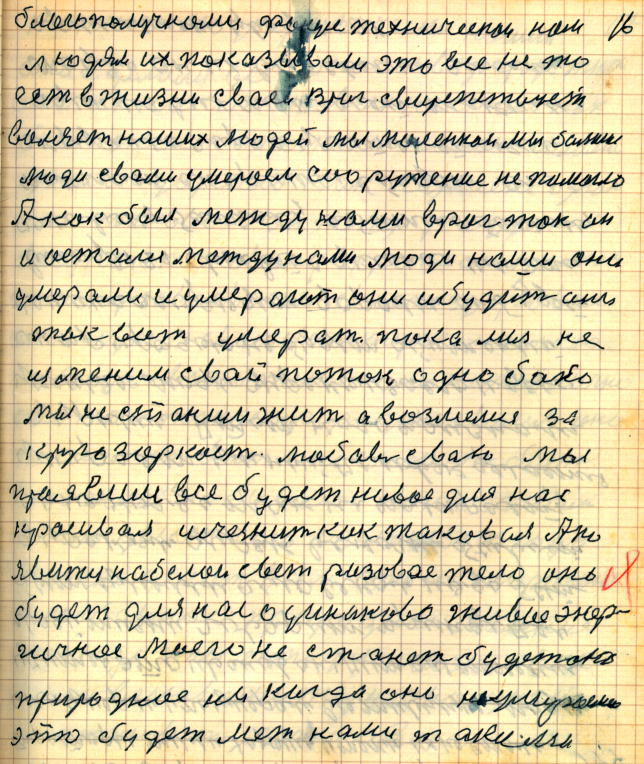 благополучноми техническои нам 16
людям их показывали это все не то
ест в жизни сваеи враг свирепствует
воляет наших людей мы маленкои мы болши
люди сваии умераем сооружение не памагло
А как был между нами враг так он
и осталя между нами люди наши они
умерали и умерают они и будут ани
так вет умерат. пока мы не
изменим свай поток одно бако
мы не станим жит а возмемя за
кругозоркаст. любов сваю мы
проявим все будет новае для нас
красивая исчезнит как таковая А по
явитя на белои свет розовае тело оно
будет для нас одинаково живое энер-
гичное моего не станет будет оно
природное ни кагда оно
это будет меж нами т аке. мы